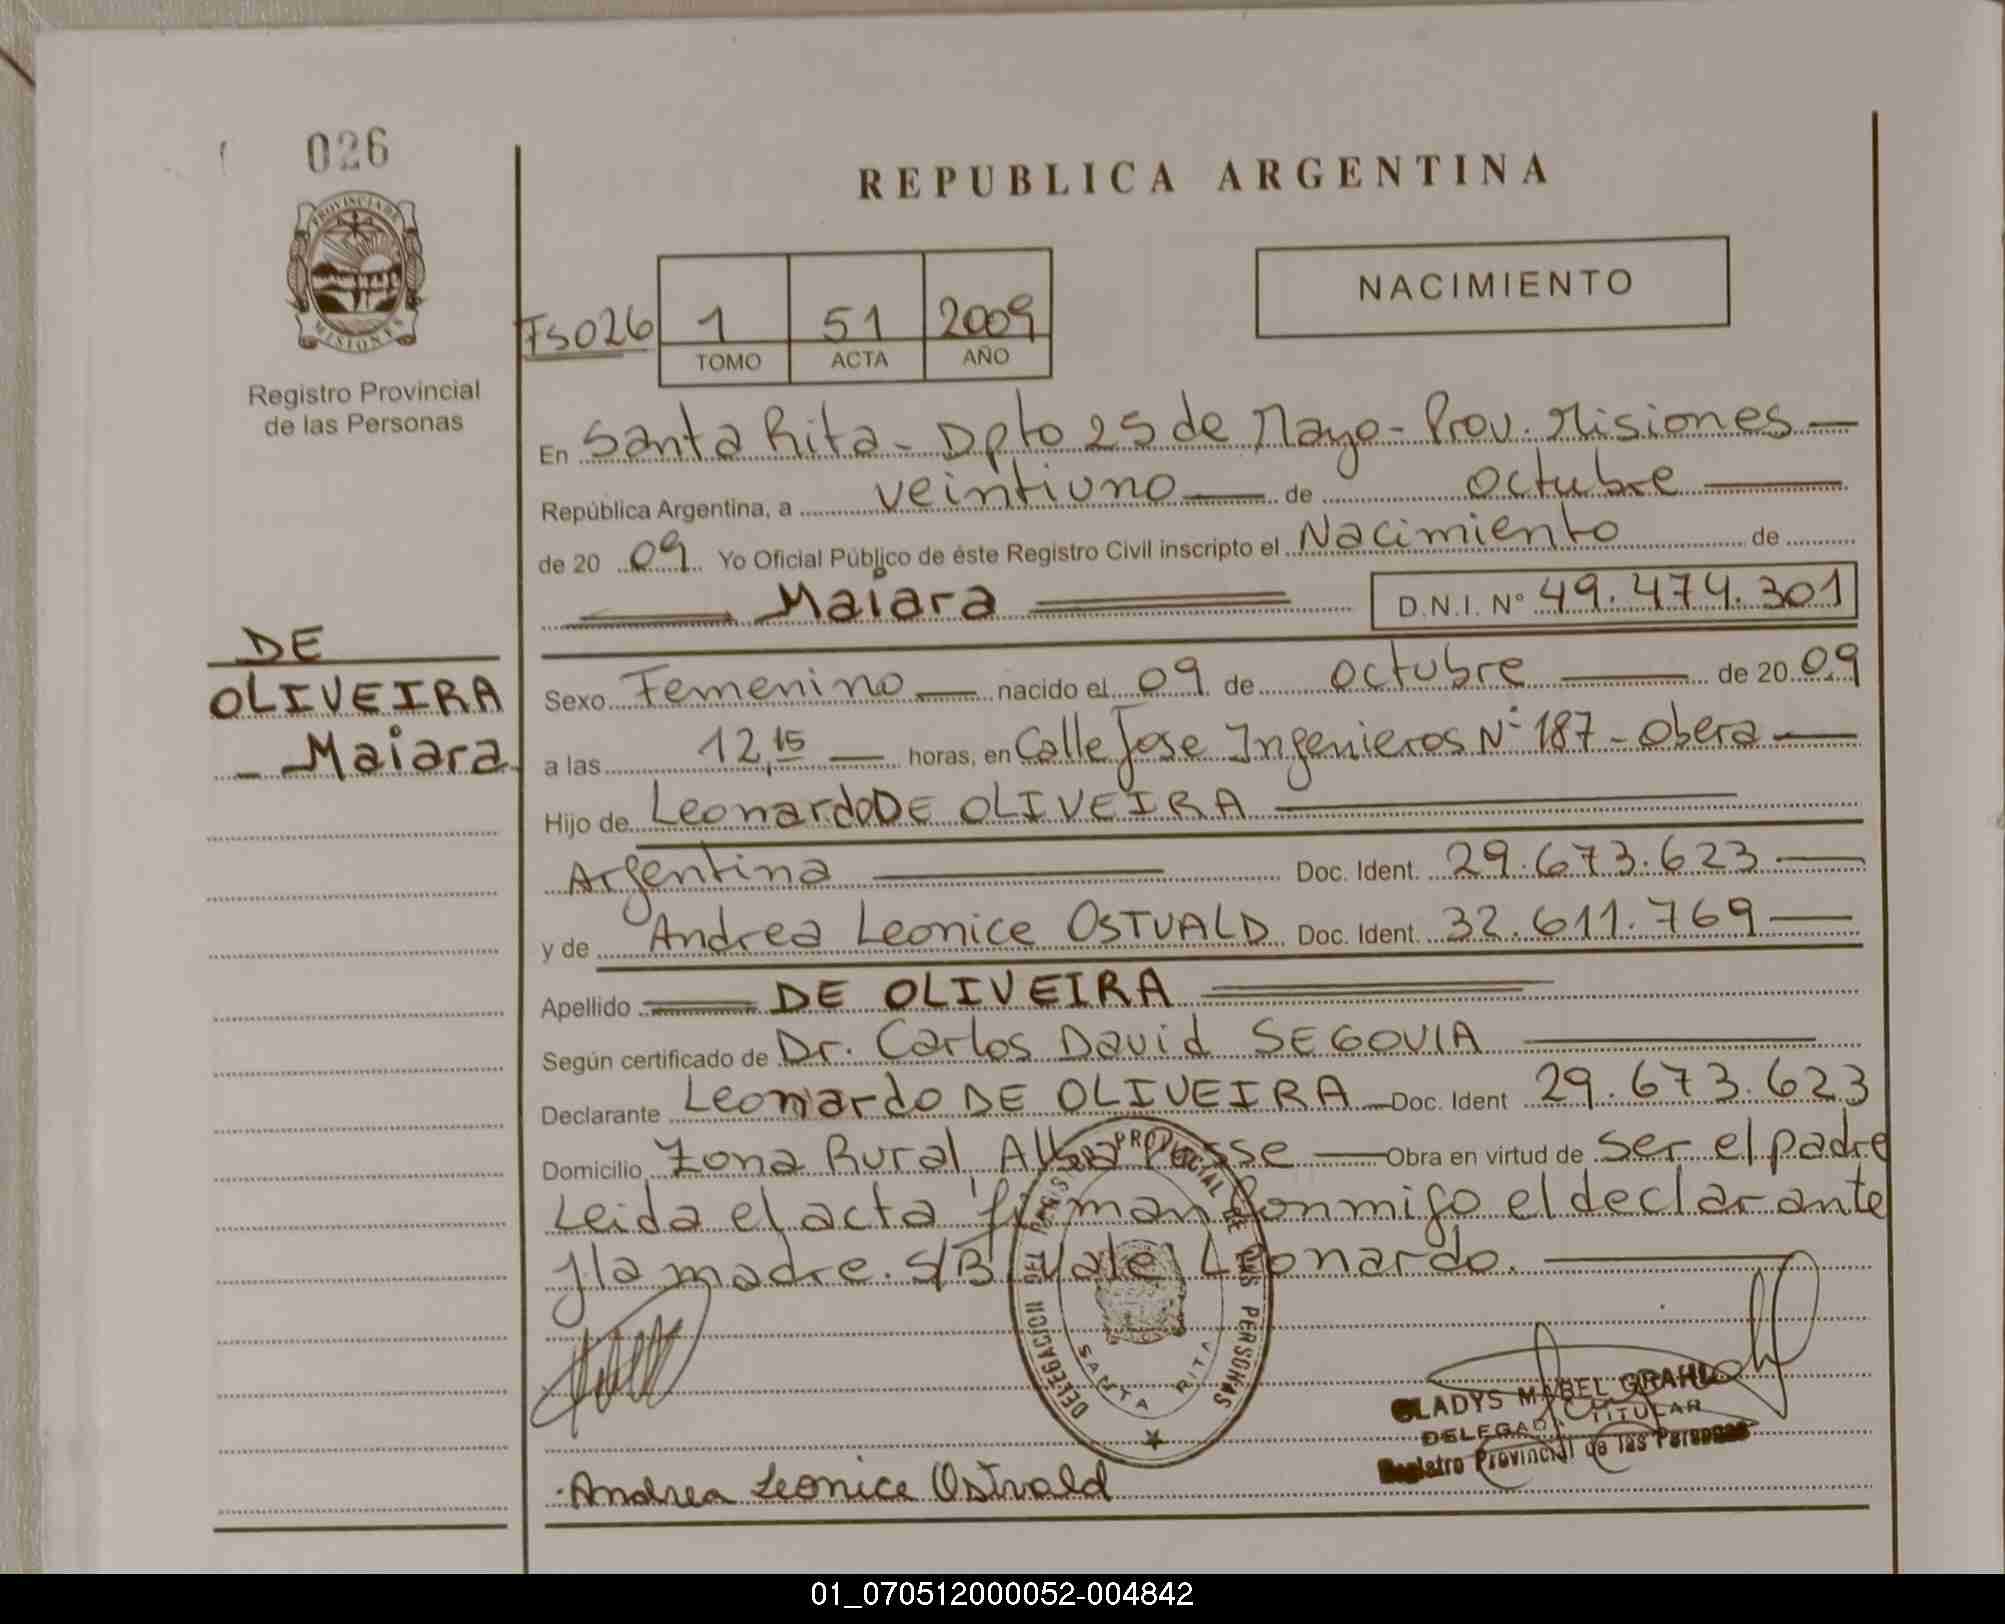 026
PROVINCIA DE
MISIONES
Registro Provincial
de las Personas
REPUBLICA ARGENTINA
NACIMIENTO
FS026 1 51 2009
TOMO ACTA AÑO
En Santa Rita - Dpto 25 de Mayo - Prov. Misiones —
República Argentina, a veintiuno — de octubre —
de 20 09 Yo Oficial Público de éste Registro Civil inscripto el Nacimiento de
Maiara D.N.I. N° 49.474.301
DE
OLIVEIRA
- Maiara
Sexo Femenino — nacido el 09 de octubre — de 20 09
a las 12,15 — horas, en Calle Jose Ingenieros N° 187 - Obera —
Hijo de Leonardo DE OLIVEIRA
Argentina — Doc. Ident. 29.673.623 —
y de Andrea Leonice OSTVALD Doc. Ident. 32.611.769 —
Apellido DE OLIVEIRA
Según certificado de Dr. Carlos David SEGOVIA —
Declarante Leonardo DE OLIVEIRA — Doc. Ident 29.673.623
Domicilio Zona Rural Alba Posse — Obra en virtud de ser el padre
Leida el acta firman conmigo el declarante
y la madre. S/B Vale Leonardo. —
DELEGACION DEL REGISTRO PROVINCIAL DE LAS PERSONAS
SANTA RITA
GLADYS MABEL GRAHL
DELEGADA TITULAR
Registro Provincial de las Personas
Andrea Leonice Ostvald
01_070512000052-004842